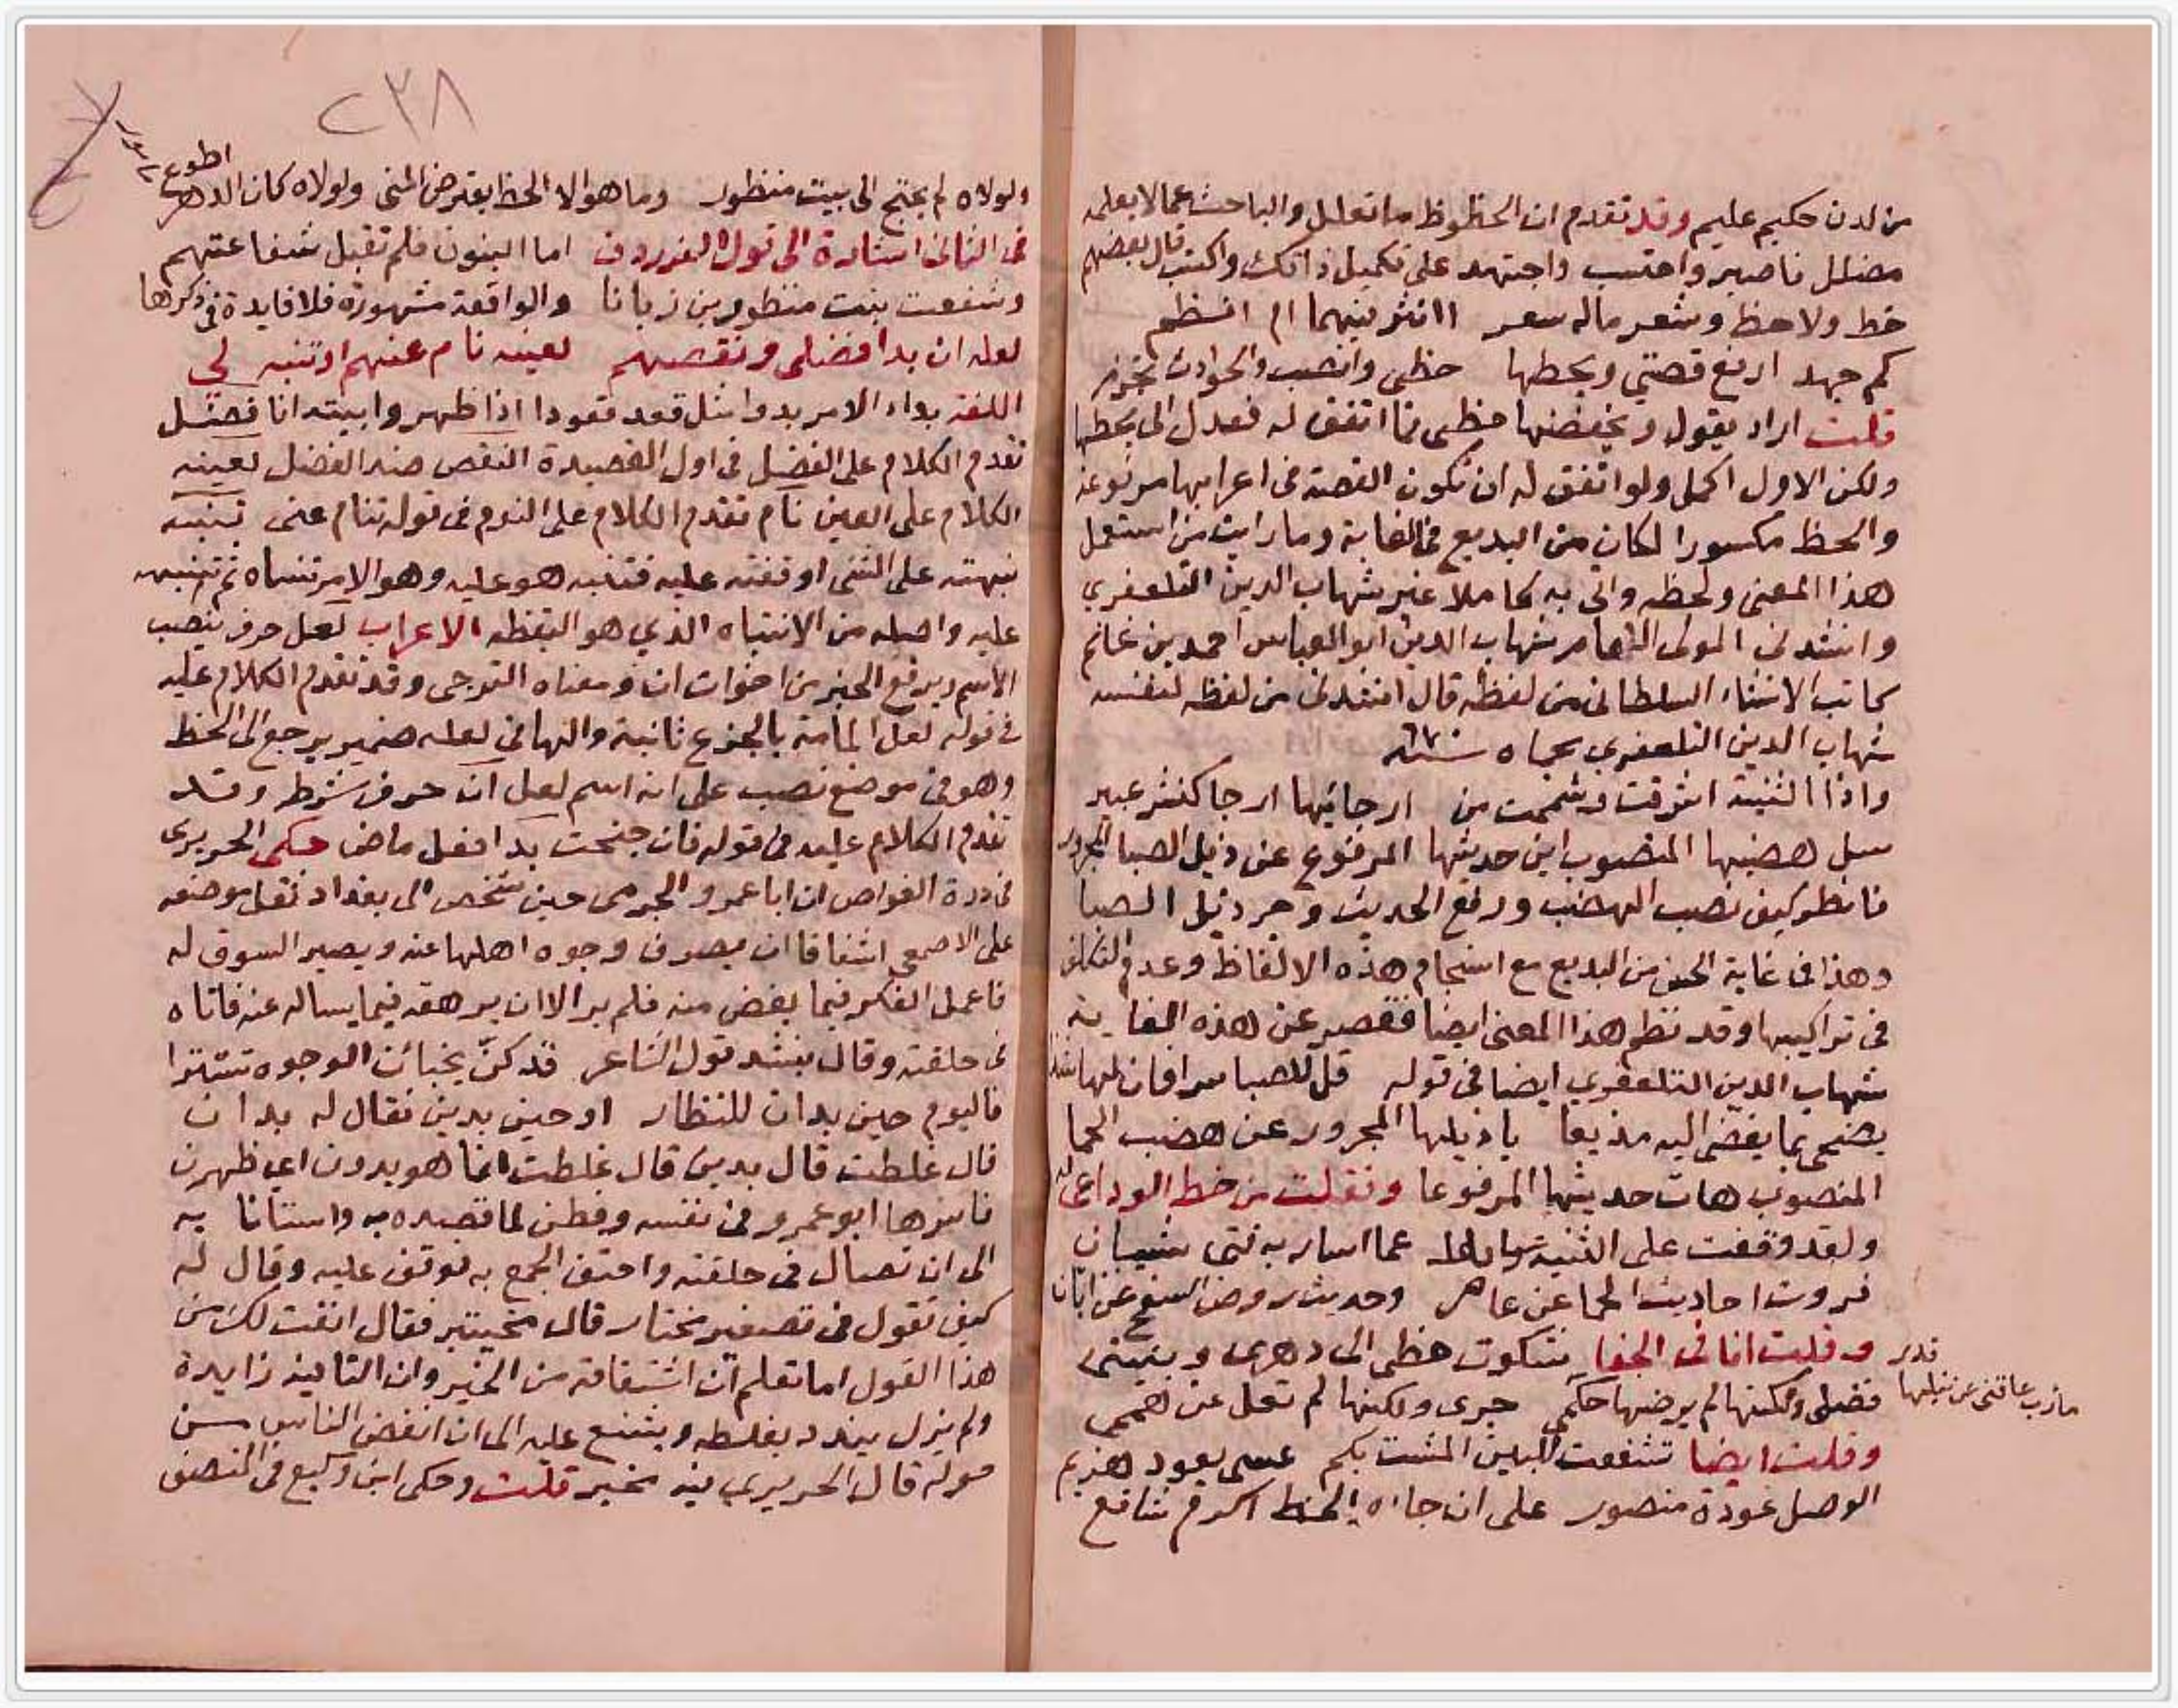 من لدن حكيم عليم وقد تقدم ان الحظوظ ما تعلل والباحث عما لا يعلمه
مضلل فاصبر واحتسب واجتهد على تكميل ذاتك واكتب قال بعضهم
خط ولا حظ وشعر ماله سعر اانثر بينهما ام انتظم
كم جهد ارفع قصتي ويحطها حظى وانصب والحوادث تجزم
قلت اراد يقول ويخفضها حظى فما اتفق له فعدل الى يحطها
ولكن الاول اكمل ولو اتفق له ان تكون القصة فى اعرابها مرفوعة
والحظ مكسورا لكان من البديع فى الغاية وما رايت من استعمل
هذا المعنى ولحظه واتى به كاملا غير شهاب الدين التلعفري
وانشدنى المولى شهاب الدين ابو العباس احمد بن غانم
كاتب الانشاء السلطانى من لفظه قال انشدنى من لفظه لنفسه
شهاب الدين التلعفري بحماه سنة
واذا الثنية اشرقت وشممت من ارجائها ارجا كنشر عبير
سل هضبها المنصوب اين حديثها المرفوع عن ذيل الصبا المجرور
فانظر كيف نصب الهضب ورفع الحديث وجر ذيل الصبا
وهذا فى غاية الحسن من البديع مع انسجام هذه الالفاظ وعدم التكلف
فى تراكيبها وقد نظم هذا المعنى ايضا فقصر عن هذه الغاية
شهاب الدين التلعفري ايضا فى قوله قل للصبا سرا فان لها شذا
يضحى بما يفضى اليه مذيعا يا ذيلها المجرور عن هضب الحما
المنصوب هات حديثها المرفوعا ونقلت من خط الوداعى له
ولقد وقفت على الثنية سايلا عما اسار به فتى شيبان
فروت احاديث الحما عن عامر وحديث روض السفح عن ابان
وقلت انا فى الجفا شكوت حظى الى دهرى وبينتم قدر
فضلى ولكنها لم يرضها حكمى جرى ولكنها لم تعل عن هممى
مارب عاقنى عن نيلها
وقلت ايضا تشفعت للبين المشت بكم عسى يعود هزيم
الوصل عودة منصور على ان جاه الحظ اكرم شافع
٢٣٨
ولولاه لم يحتج الى بيت منظور وما هو الا الحظ يعترض المنى ولولاه كان الدهر
اطوع
فى الثانى اشارة الى قول الفرزدق اما البنون فلم تقبل شفاعتهم
وشفعت بنت منظور بن زبانا والواقعة مشهورة فلا فايدة فى ذكرها
لعله ان بدا فضلى ونقصهم لعينه نام عنهم او تنبه لي
اللغة بداء الامر بدوا مثل قعد قعودا اذا ظهر وابيته انا فضل
تقدم الكلام على الفضل فى اول القصيدة النقص ضد الفضل لعينه
الكلام على العين نام تقدم الكلام على النوم فى قوله تنام عنى تنبه
نبهته على الشى اوقفته عليه فتنبه هو عليه وهو الامر تنساه ثم تنتبه
عليه واصله من الانتباه الذي هو اليقظه الاعراب لعل حرف ينصب
الاسم ويرفع الخبر من اخوات ان ومعناه الترجى وقد تقدم الكلام عليه
فى قوله لعل المامة بالجزع ثانية والها فى لعله ضمير يرجع الى الحظ
وهو فى موضع نصب على انه اسم لعل ان حرف شرط وقد
تقدم الكلام عليه فى قوله فان جنحت بدا فعل ماض حكى الحريرى
فى درة الغواص ان ابا عمرو الجرمى حين شخص الى بغداد ثقل موضعه
على الاصمعي اشفاقا ان يصرف وجوه اهلها عنه ويصير السوق له
فاعمل الفكر فيما يغض منه فلم ير الا ان يرهقه فيما يساله عنه فاتاه
فى حلقته وقال ينشد قول الشاعر قد كنّ يخبأن الوجوه تسترا
فاليوم حين بدان للنظار او حين بدين فقال له بدان
قال غلطت قال بدين قال غلطت انما هو بدون اي ظهرن
فاسرها ابو عمرو فى نفسه وفطن لما قصده به واستانا به
الى ان تصدر فى حلقته واحتف الجمع به فوقف عليه وقال له
كيف تقول فى تصغير مختار قال مخيتير فقال انفت لك من
هذا القول اما تعلم ان اشتقاقه من الخير وان التا فيه زايدة
ولم يزل يندد بغلطه ويشنع عليه الى ان انفض الناس من
حوله قال الحريري فيه مخير قلت وحكى ابن وكيع فى المنصف